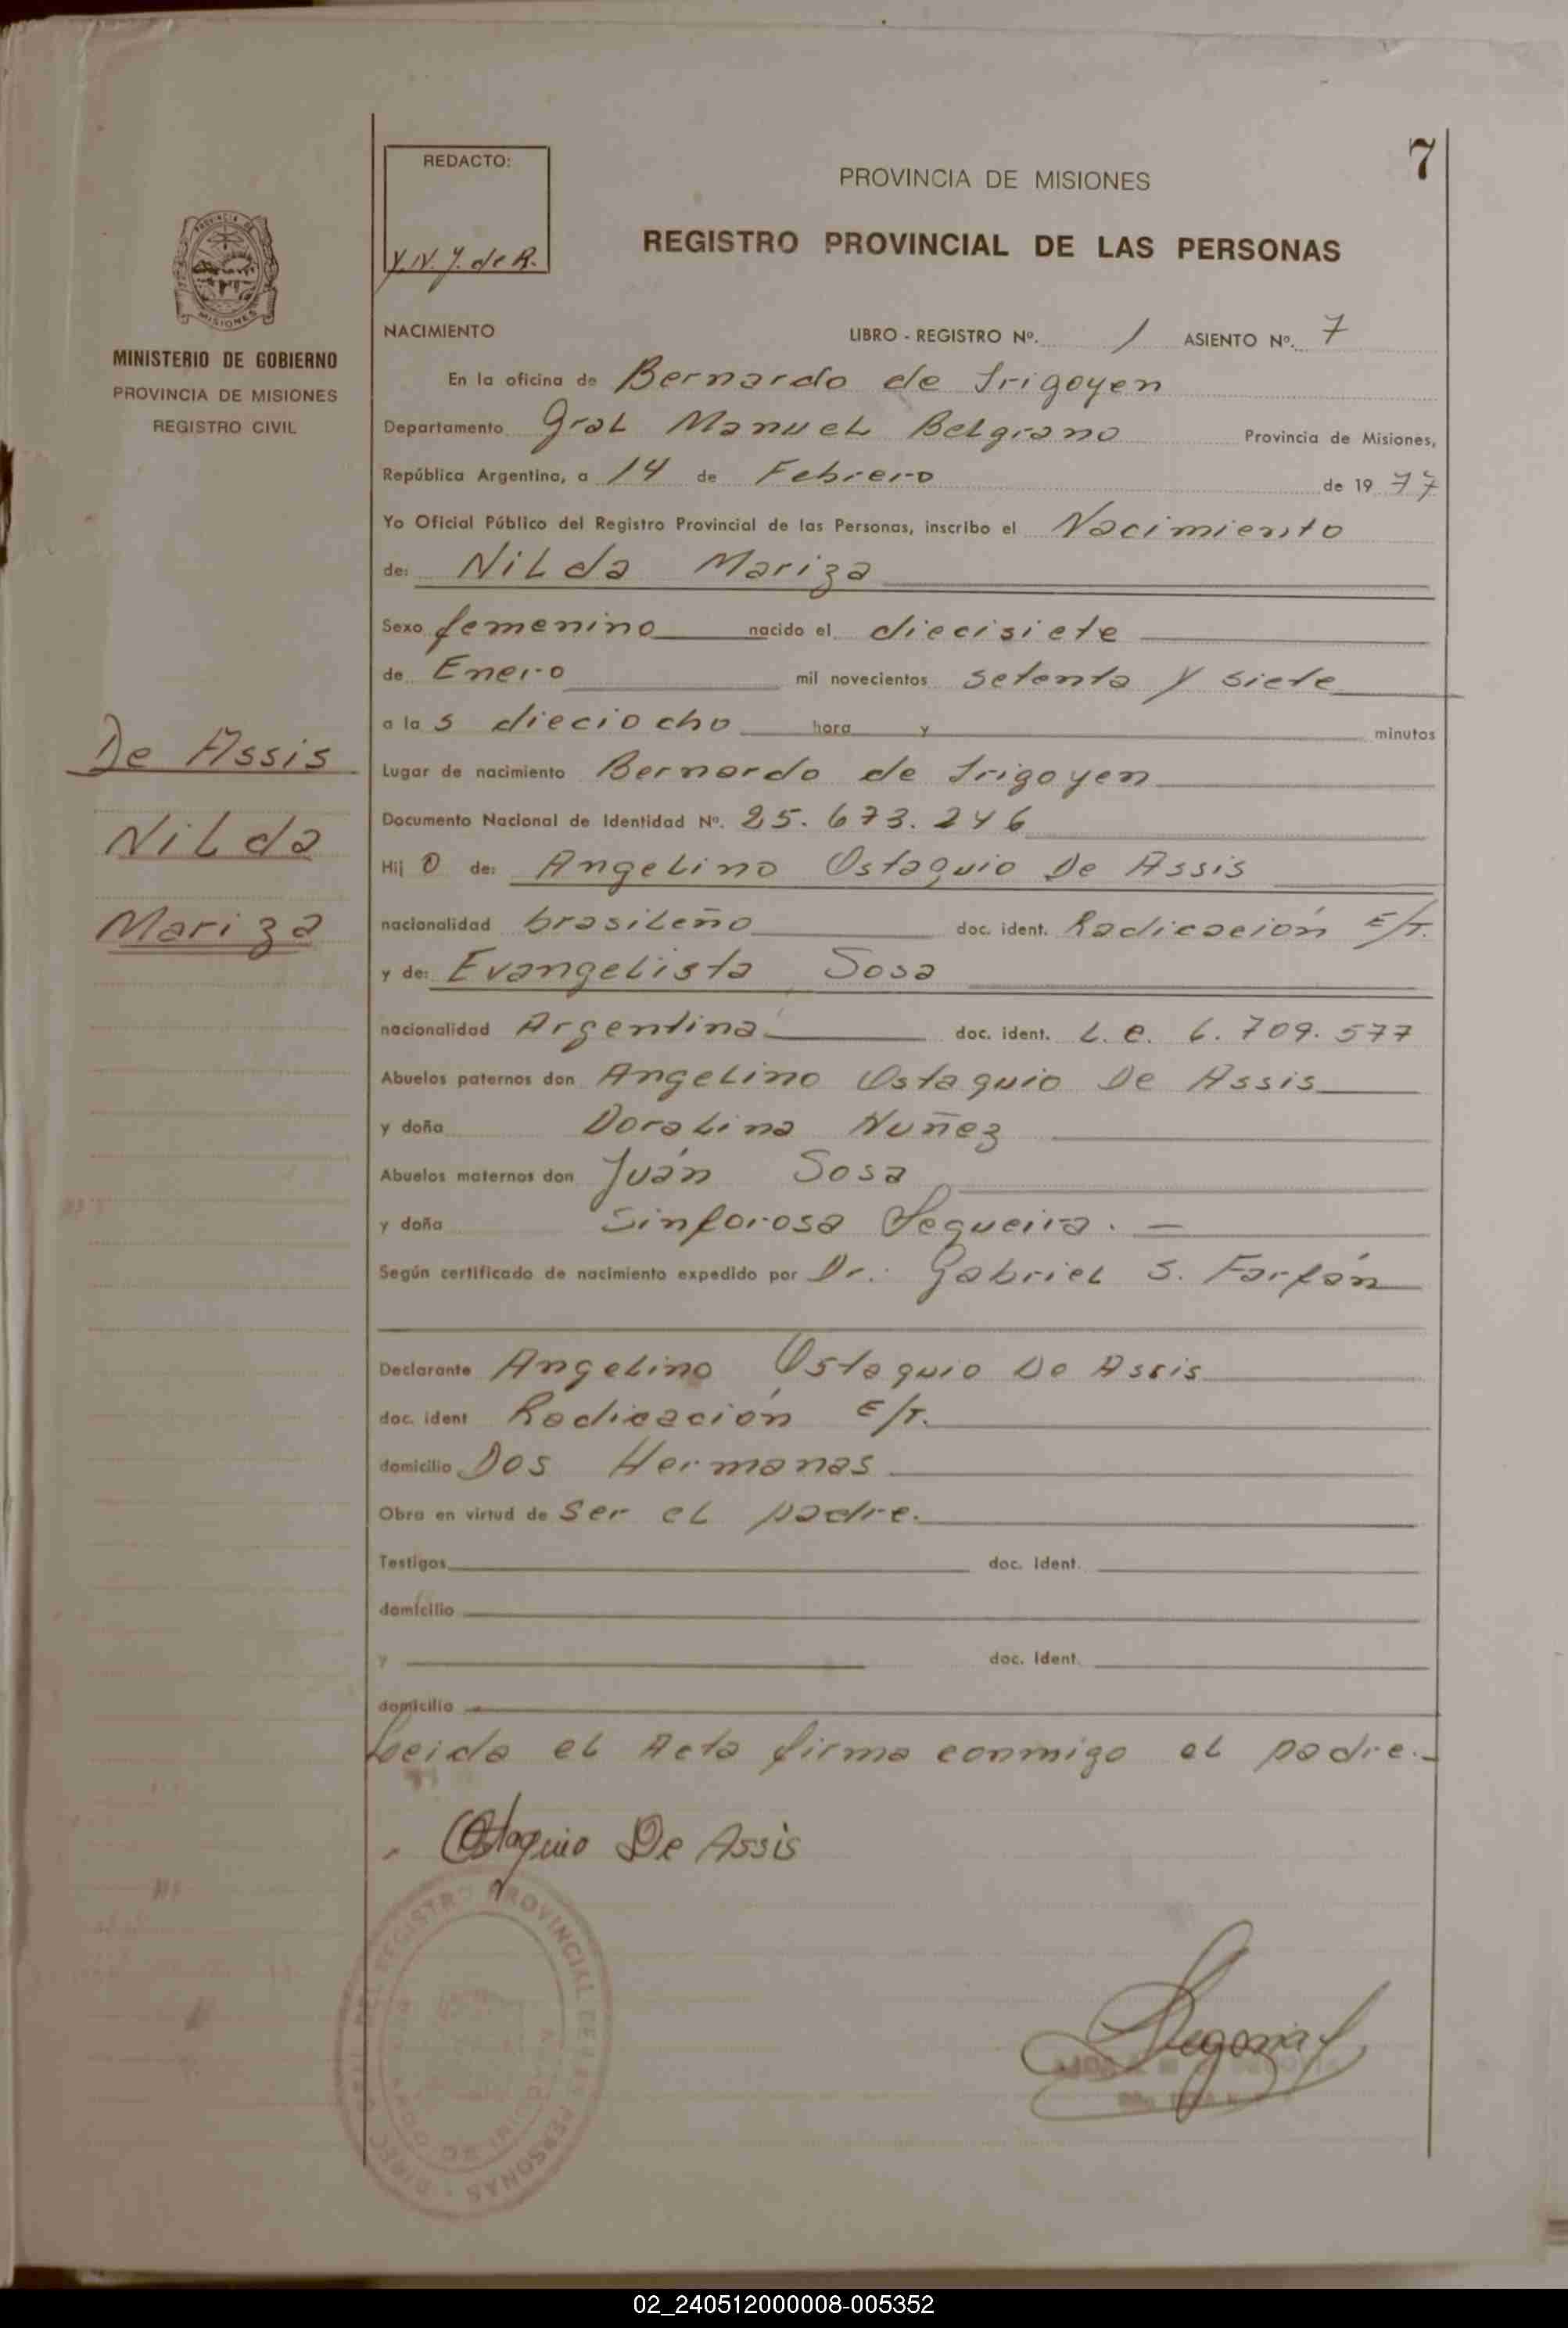 7
REDACTO:
PROVINCIA DE MISIONES
REGISTRO PROVINCIAL DE LAS PERSONAS
Y.N.Y. de R.
MISIONES
MINISTERIO DE GOBIERNO
PROVINCIA DE MISIONES
REGISTRO CIVIL
De Assis
Nilda
Mariza
NACIMIENTO LIBRO - REGISTRO Nº. 1 ASIENTO Nº. 7
En la oficina de Bernardo de Irigoyen
Departamento Gral Manuel Belgrano Provincia de Misiones,
República Argentina, a 14 de Febrero de 19 77
Yo Oficial Público del Registro Provincial de las Personas, inscribo el Nacimiento
de: Nilda Mariza
Sexo femenino nacido el diecisiete
de Enero mil novecientos setenta y siete
a la s dieciocho hora y minutos
Lugar de nacimiento Bernardo de Irigoyen
Documento Nacional de Identidad Nº. 25.673.246
Hij o de: Angelino Ostaquio De Assis
nacionalidad brasileño doc. ident. Radicación E/T.
y de: Evangelista Sosa
nacionalidad Argentina doc. ident. L.c. 6.709.577
Abuelos paternos don Angelino Ostaquio De Assis
y doña Doralina Nuñez
Abuelos maternos don Juán Sosa
y doña Sinforosa Sequeira. —
Según certificado de nacimiento expedido por Dr. Gabriel S. Farfán
Declarante Angelino Ostaquio De Assis
doc. ident Radicación E/T.
domicilio Dos Hermanas
Obra en virtud de ser el padre.
Testigos doc. ident.
domicilio
y doc. ident.
domicilio
Leida el Acta firma conmigo el padre.-
Ostaquio De Assis
REGISTRO PROVINCIAL DE LAS PERSONAS
02_240512000008-005352